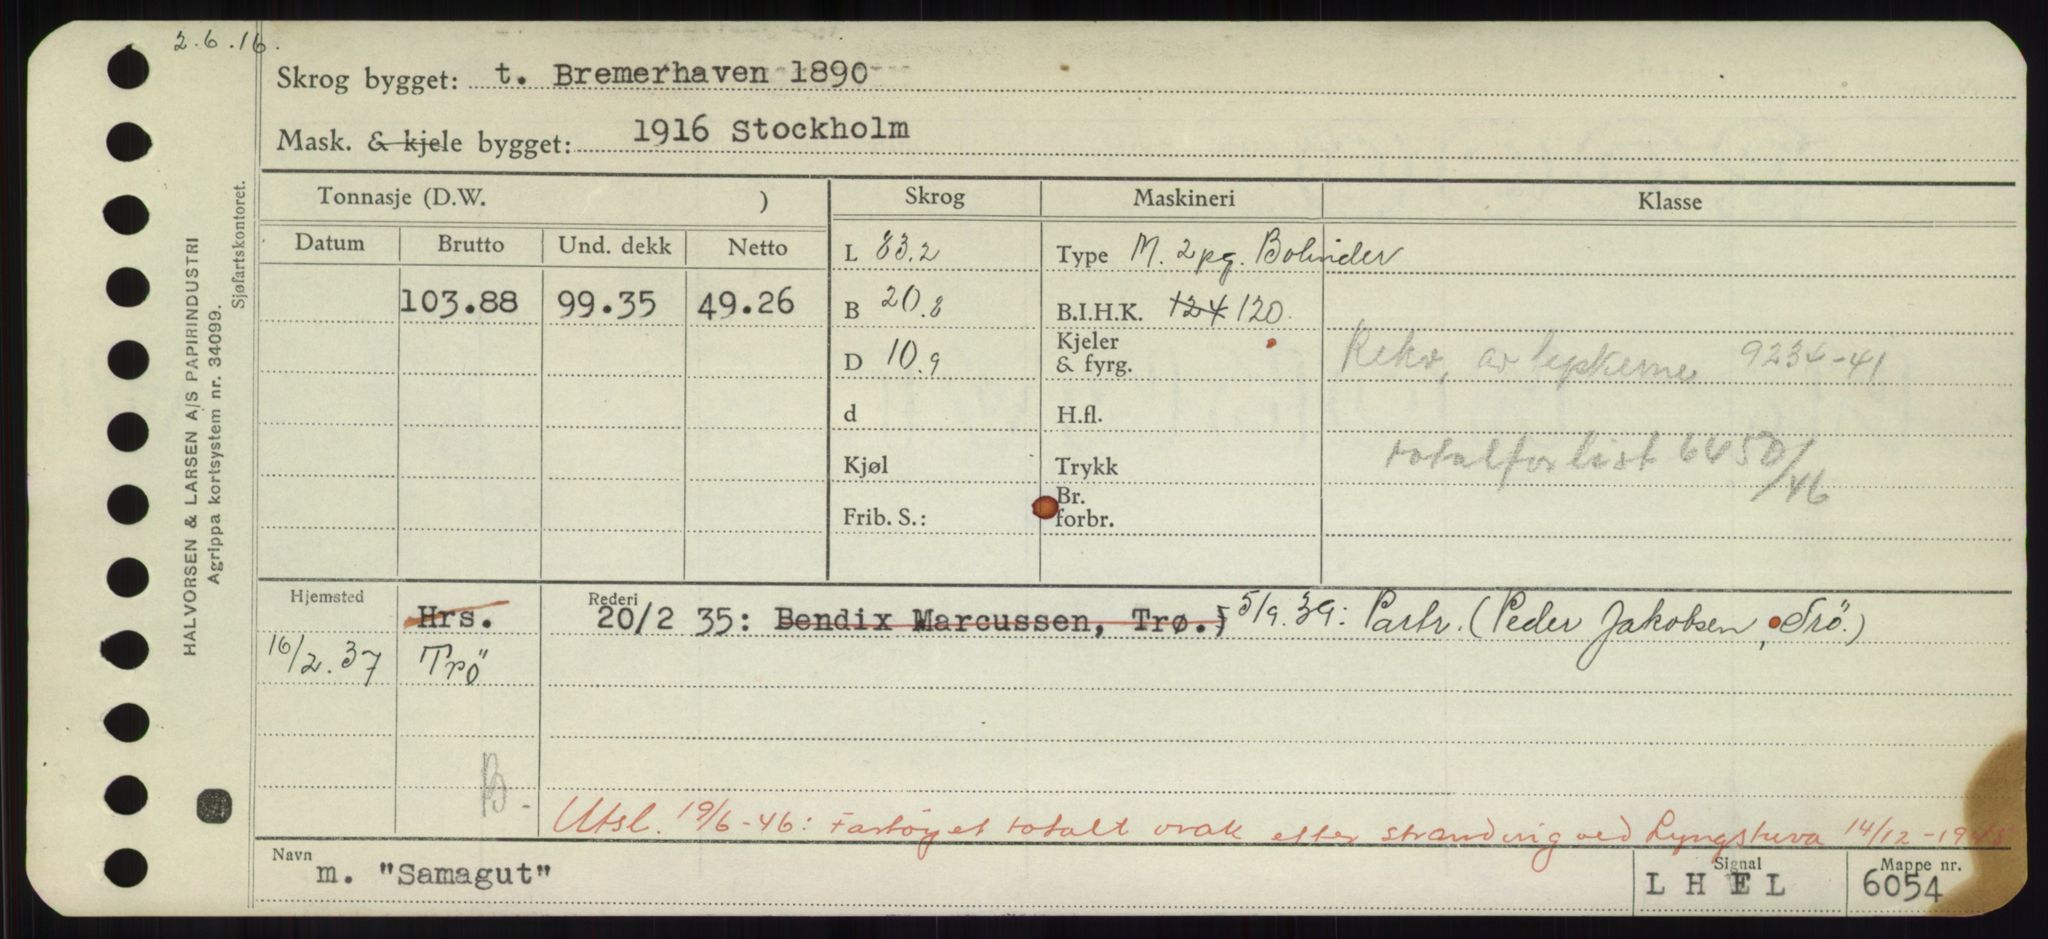 2.6.16.
Skrog bygget: t. Bremerhaven 1890
Mask. & kjele bygget: 1916 Stockholm
HALVORSEN & LARSEN A/S PAPIRINDUSTRI
Agrippa kortsystem nr. 34099.
Sjøfartskontoret.
Tonnasje (D.W. ) Skrog Maskineri Klasse
Datum Brutto Und. dekk Netto
L 83.2 Type M. 2pg. Bolinder
103.88 99.35 49.26 B 20.8 B.I.H.K. 124 120.
D 10.9 Kjeler & fyrg. Rekv. av tyskerne 9236-41
d H.fl.
Kjøl Trykk totalforlist 6450/46
Frib. S.: Br. forbr.
Hjemsted Hrs. Rederi 20/2 35: Bendix Marcussen, Trø.; 5/9.39: Partr. (Peder Jakobsen, Trö.)
16/2.37 Trö
B.
Utsl. 19/6-46: Fartöyet totalt vrak efter stranding ved Lyngstuva 14/12-1945
Navn m. "Samagut" Signal LHEL Mappe nr. 6054